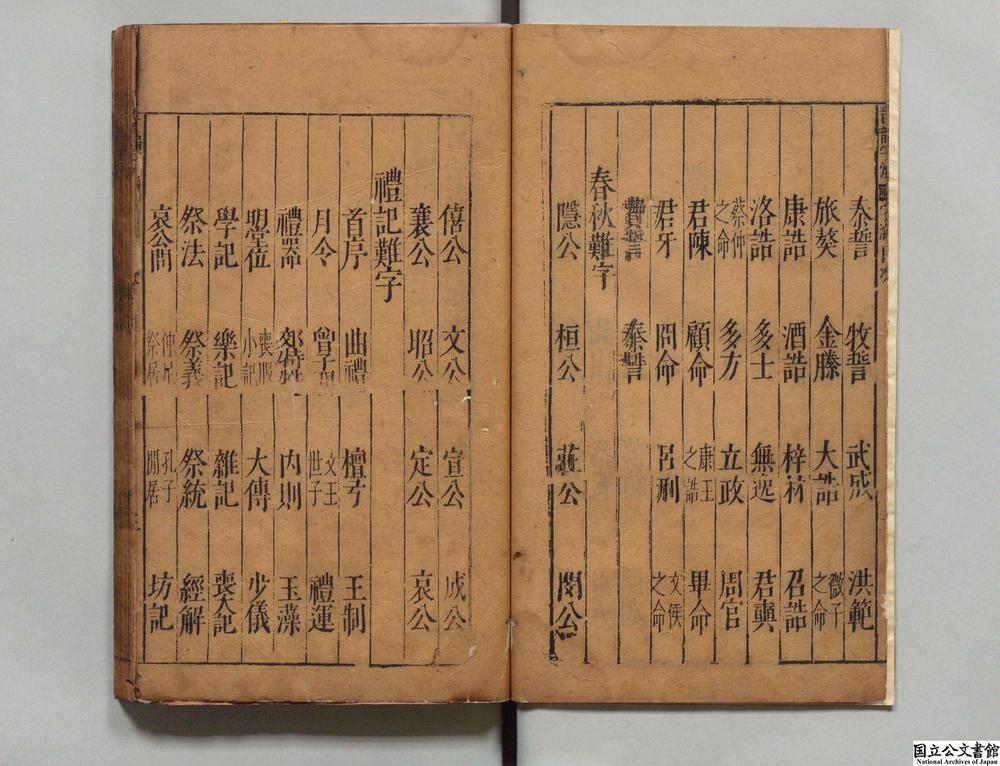 泰誓 牧誓 武成 洪範
旅獒 金縢 大誥 微子之命
康誥 酒誥 梓材 召誥
洛誥 多士 無逸 君奭
蔡仲之命 多方 立政 周官
君陳 顧命 康王之誥 畢命
君牙 冏命 呂刑 文侯之命
費誓 秦誓
春秋難字
隱公 桓公 莊公 閔公
僖公 文公 宣公 成公
襄公 昭公 定公 哀公
禮記難字
首序 曲禮 檀弓 王制
月令 曾子問 文王世子 禮運
禮器 郊特牲 內則 玉藻
明堂位 喪服小記 大傳 少儀
學記 樂記 雜記 喪大記
祭法 祭義 祭統 經解
哀公問 仲尼燕居 孔子閒居 坊記
国立公文書館
National Archives of Japan